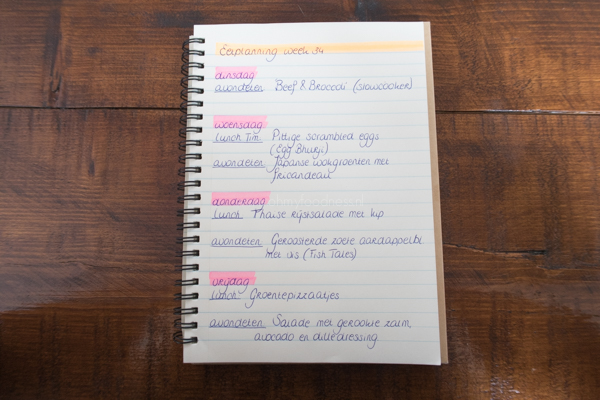 Eetplanning week 34
dinsdag
avondeten Beef & Broccoli (slowcooker)
woensdag
lunch Tim Pittige scrambled eggs
(Egg Bhurji)
avondeten Japanse wokgroenten met
fricandeau
donderdag
lunch Thaise rijstsalade met kip
avondeten Geroosterde zoete aardappel
met vis (Fish Tales)
vrijdag
lunch Groentepizzaatjes
avondeten Salade met gerookte zalm,
avocado en dilledressing